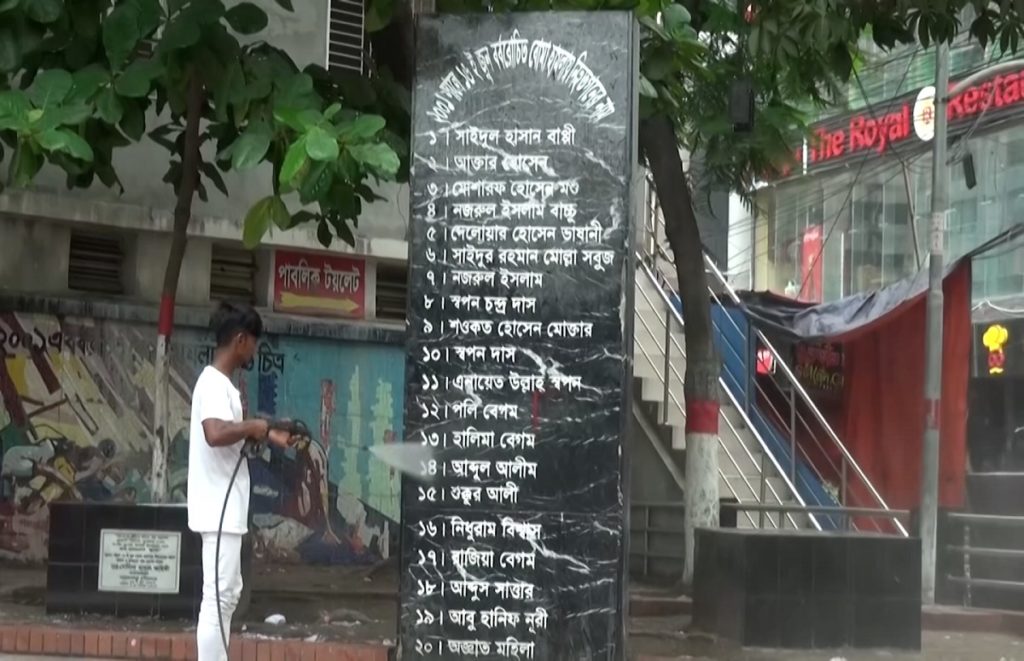 ২০০১ সালের ১৬ ই জুন বর্বরোচিত বোমা হামলায় নিহতদের নাম
১। সাইদুল হাসান বাপ্পী
২। আক্তার হোসেন
৩। মোশারফ হোসেন মশু
৪। নজরুল ইসলাম বাচ্চু
৫। দেলোয়ার হোসেন ভাষানী
৬। সাইদুর রহমান মোল্লা সবুজ
৭। নজরুল ইসলাম
৮। স্বপন চন্দ্র দাস
৯। শওকত হোসেন মোক্তার
১০। স্বপন দাস
১১। এনায়েত উল্লাহ স্বপন
১২। পলি বেগম
১৩। হালিমা বেগম
১৪। আব্দুল আলীম
১৫। শুক্কুর আলী
১৬। নিধুরাম বিশ্বাস
১৭। রাজিয়া বেগম
১৮। আব্দুস সাত্তার
১৯। আবু হানিফ নূরী
২০। অজ্ঞাত মহিলা
পাবলিক টয়লেট
The Royal Restau
২০০১
চিত্র